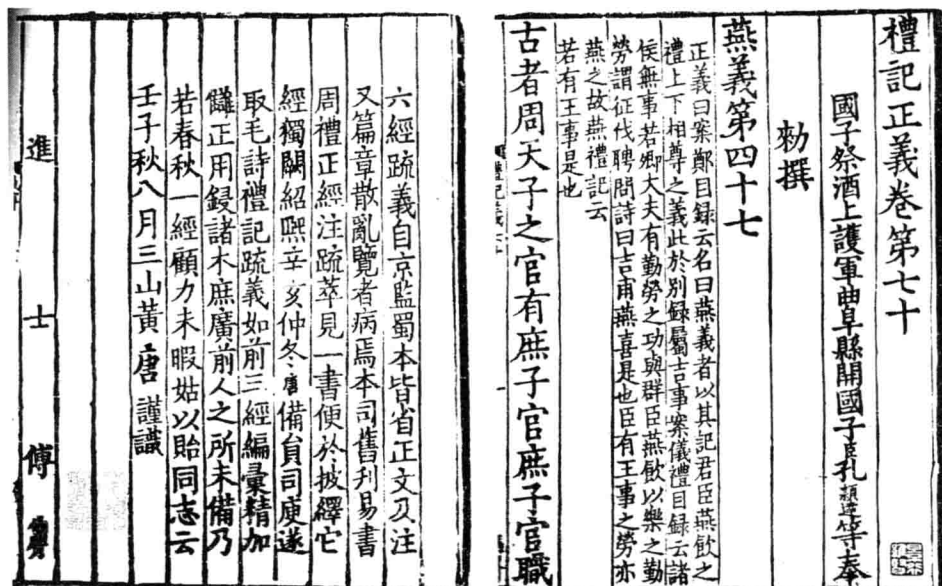 禮記正義卷第七十
國子祭酒上護軍曲阜縣開國子臣孔穎達等奉
勑撰
燕義第四十七
正義曰案鄭目録云名曰燕義者以其記君臣燕飲之
禮上下相尊之義此於别録屬吉事案儀禮目録云諸
侯無事若卿大夫有勤勞之功與群臣燕飲以樂之勤
勞謂征伐聘問詩曰吉甫燕喜是也臣有王事之勞亦
燕之故燕禮記云
若有王事是也
古者周天子之官有庶子官庶子官職
六經疏義自京監蜀本皆省正文及注
又篇章散亂覽者病焉本司舊刊易書
周禮正經注疏萃見一書便於披繹它
經獨闕紹熙辛亥仲冬唐備員司庾遂
取毛詩禮記疏義如前三經編彙精加
讎正用鋟諸木庶廣前人之所未備乃
若春秋一經顧力未暇姑以貽同志云
壬子秋八月三山黃唐謹識
進士傅